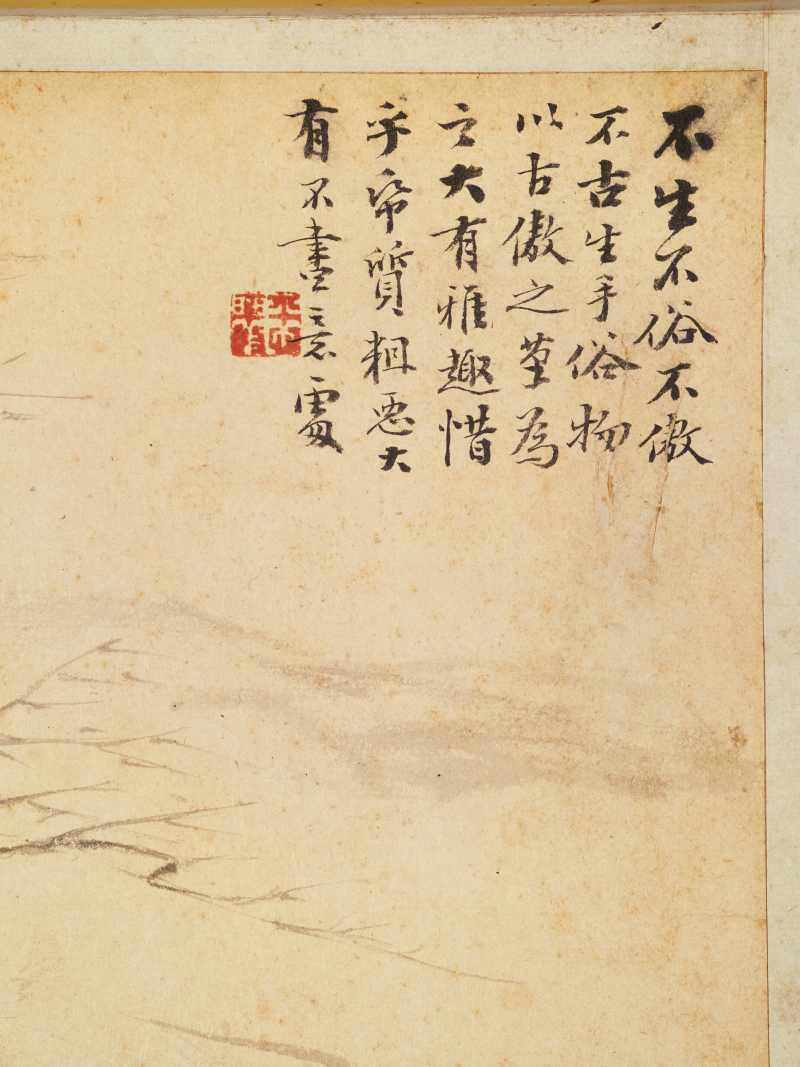 不生不俗不傲
不古生手俗物
以古傲之堇為
之大有雅趣惜
乎帋質粗惡大
有不盡意處